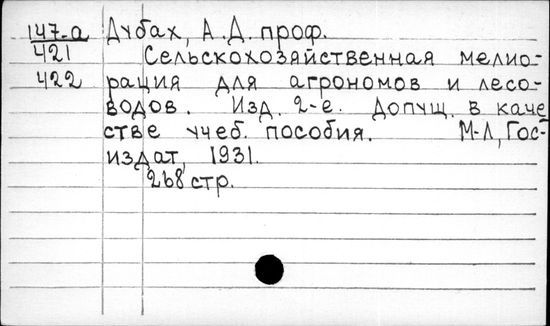 147-а Дубах, А.Д. проф.
421 Сельскохозяйственная мелио-
422 рация для агрономов и лесо-
водов. Изд. 2-е. Допущ. в каче
стве учеб. пособия. М-Л, Гос-
издат, 1931.
268 стр.